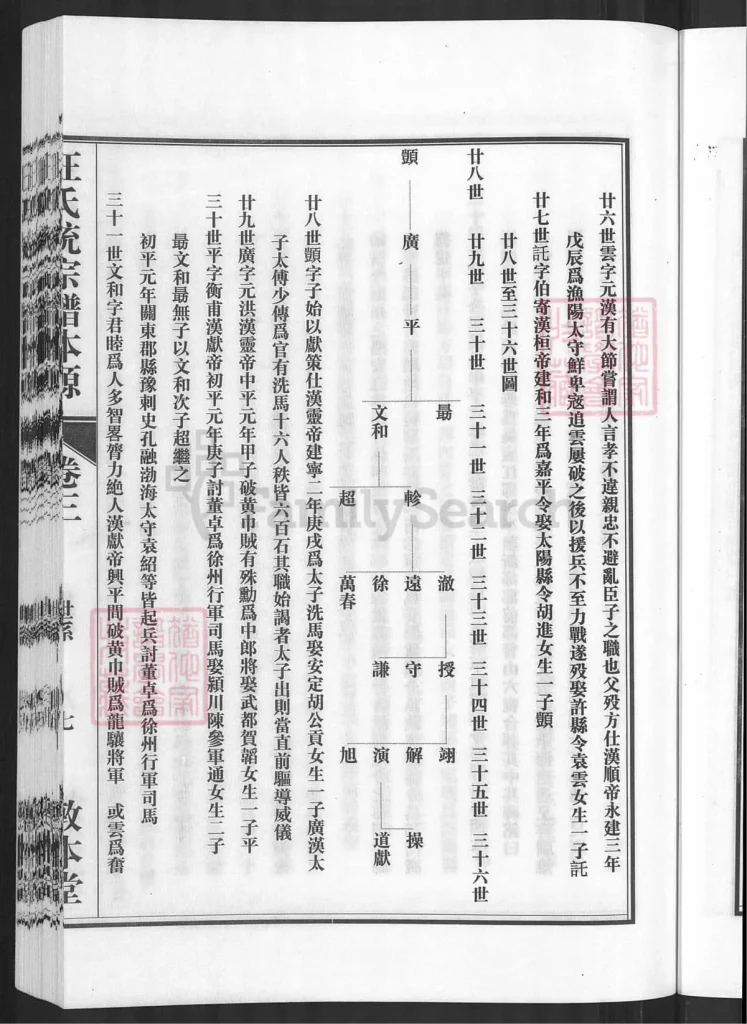 廿六世雲字元漢有大節嘗謂人言孝不違親忠不避亂臣子之職也父歿方仕漢順帝永建三年
戊辰爲漁陽太守鮮卑寇追雲屢破之後以援兵不至力戰遂歿娶許縣令袁雲女生一子託
廿七世託字伯寄漢桓帝建和三年爲嘉平令娶太陽縣令胡進女生一子顗
廿八世至三十六世圖
廿八世 廿九世 三十世 三十一世 三十二世 三十三世 三十四世 三十五世 三十六世
勗 澈 授 翊
顗 廣 平 軫 遠 守 解 操
文和 徐 謙 演 道獻
超 萬春 旭
廿八世顗字子始以獻策仕漢靈帝建寧二年庚戌爲太子洗馬娶安定胡公貢女生一子廣漢太
子太傅少傅爲官有洗馬十六人秩皆六百石其職始謁者太子出則當直前驅導威儀
廿九世廣字元洪漢靈帝中平元年甲子破黃巾賊有殊勳爲中郎將娶武都賀韜女生一子平
三十世平字衡甫漢獻帝初平元年庚子討董卓爲徐州行軍司馬娶潁川陳參軍通女生二子
勗文和勗無子以文和次子超繼之
初平元年關東郡縣豫刺史孔融渤海太守袁紹等皆起兵討董卓爲徐州行軍司馬
三十一世文和字君睦爲人多智畧膂力絶人漢獻帝興平間破黃巾賊爲龍驤將軍 或雲爲奮
汪氏統宗譜本源 卷三 世系 七 敦本堂
FamilySearch